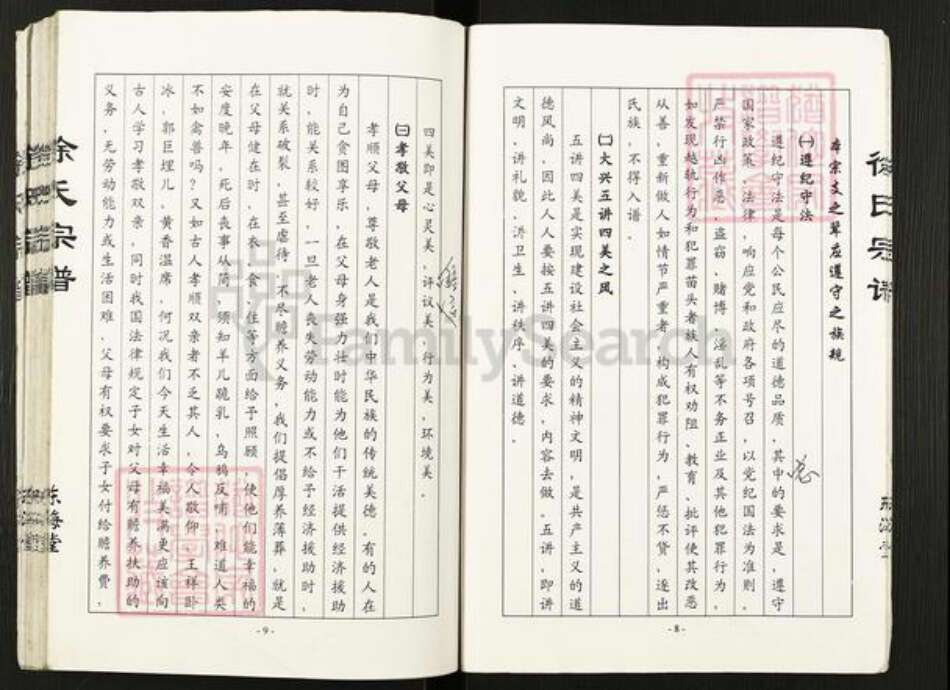 徐氏宗谱
东海堂
本宗支之辈应遵守之族规
㈠遵纪守法
遵纪守法是每个公民应尽的道德品质，其中的要求是，遵守
国家政策、法律，响应党和政府各项号召，以党纪国法为准则．
严禁行凶作恶，盗窃、赌博、淫乱等不务正业及其他犯罪行为，
如发现越轨行为和犯罪苗头者族人有权劝阻、教育、批评使其改恶
从善，重新做人如情节严重者，构成犯罪行为，严惩不贷，逐出
氏族，不得入谱．
㈡大兴五讲四美之风
五讲四美是实现建设社会主义的精神文明，是共产主义的道
德风尚，因此人人要按五讲四美的要求，内容去做。五讲，即讲
文明，讲礼貌，讲卫生，讲秩序，讲道德．
-8-
四美即是心灵美，评议美，行为美，环境美．
㈢孝敬父母
孝顺父母，尊敬老人是我们中华民族的传统美德．有的人在
为自己贪图享乐，在父母身强力壮时能为他们干活提供经济援助
时，能关系较好，一旦老人丧失劳动能力或不给予经济援助时，
就关系破裂，甚至虐待，不尽赡养义务，我们提倡厚养薄葬，就是
在父母健在时，在衣、食、住等方面给予照顾，使他们能幸福的
安度晚年，死后丧事从简，须知羊儿跪乳，乌鸦反哺，难道人类
不如禽兽吗？又如古人孝顺双亲者不乏其人，令人敬仰，王祥卧
冰，郭巨埋儿，黄香温席，何况我们今天生活幸福美满更应该向
古人学习孝敬双亲，同时我国法律规定子女对父母有赡养扶助的
义务，无劳动能力或生活困难，父母有权要求子女付给赡养费，
-9-
徐氏宗谱
东海堂
FamilySearch